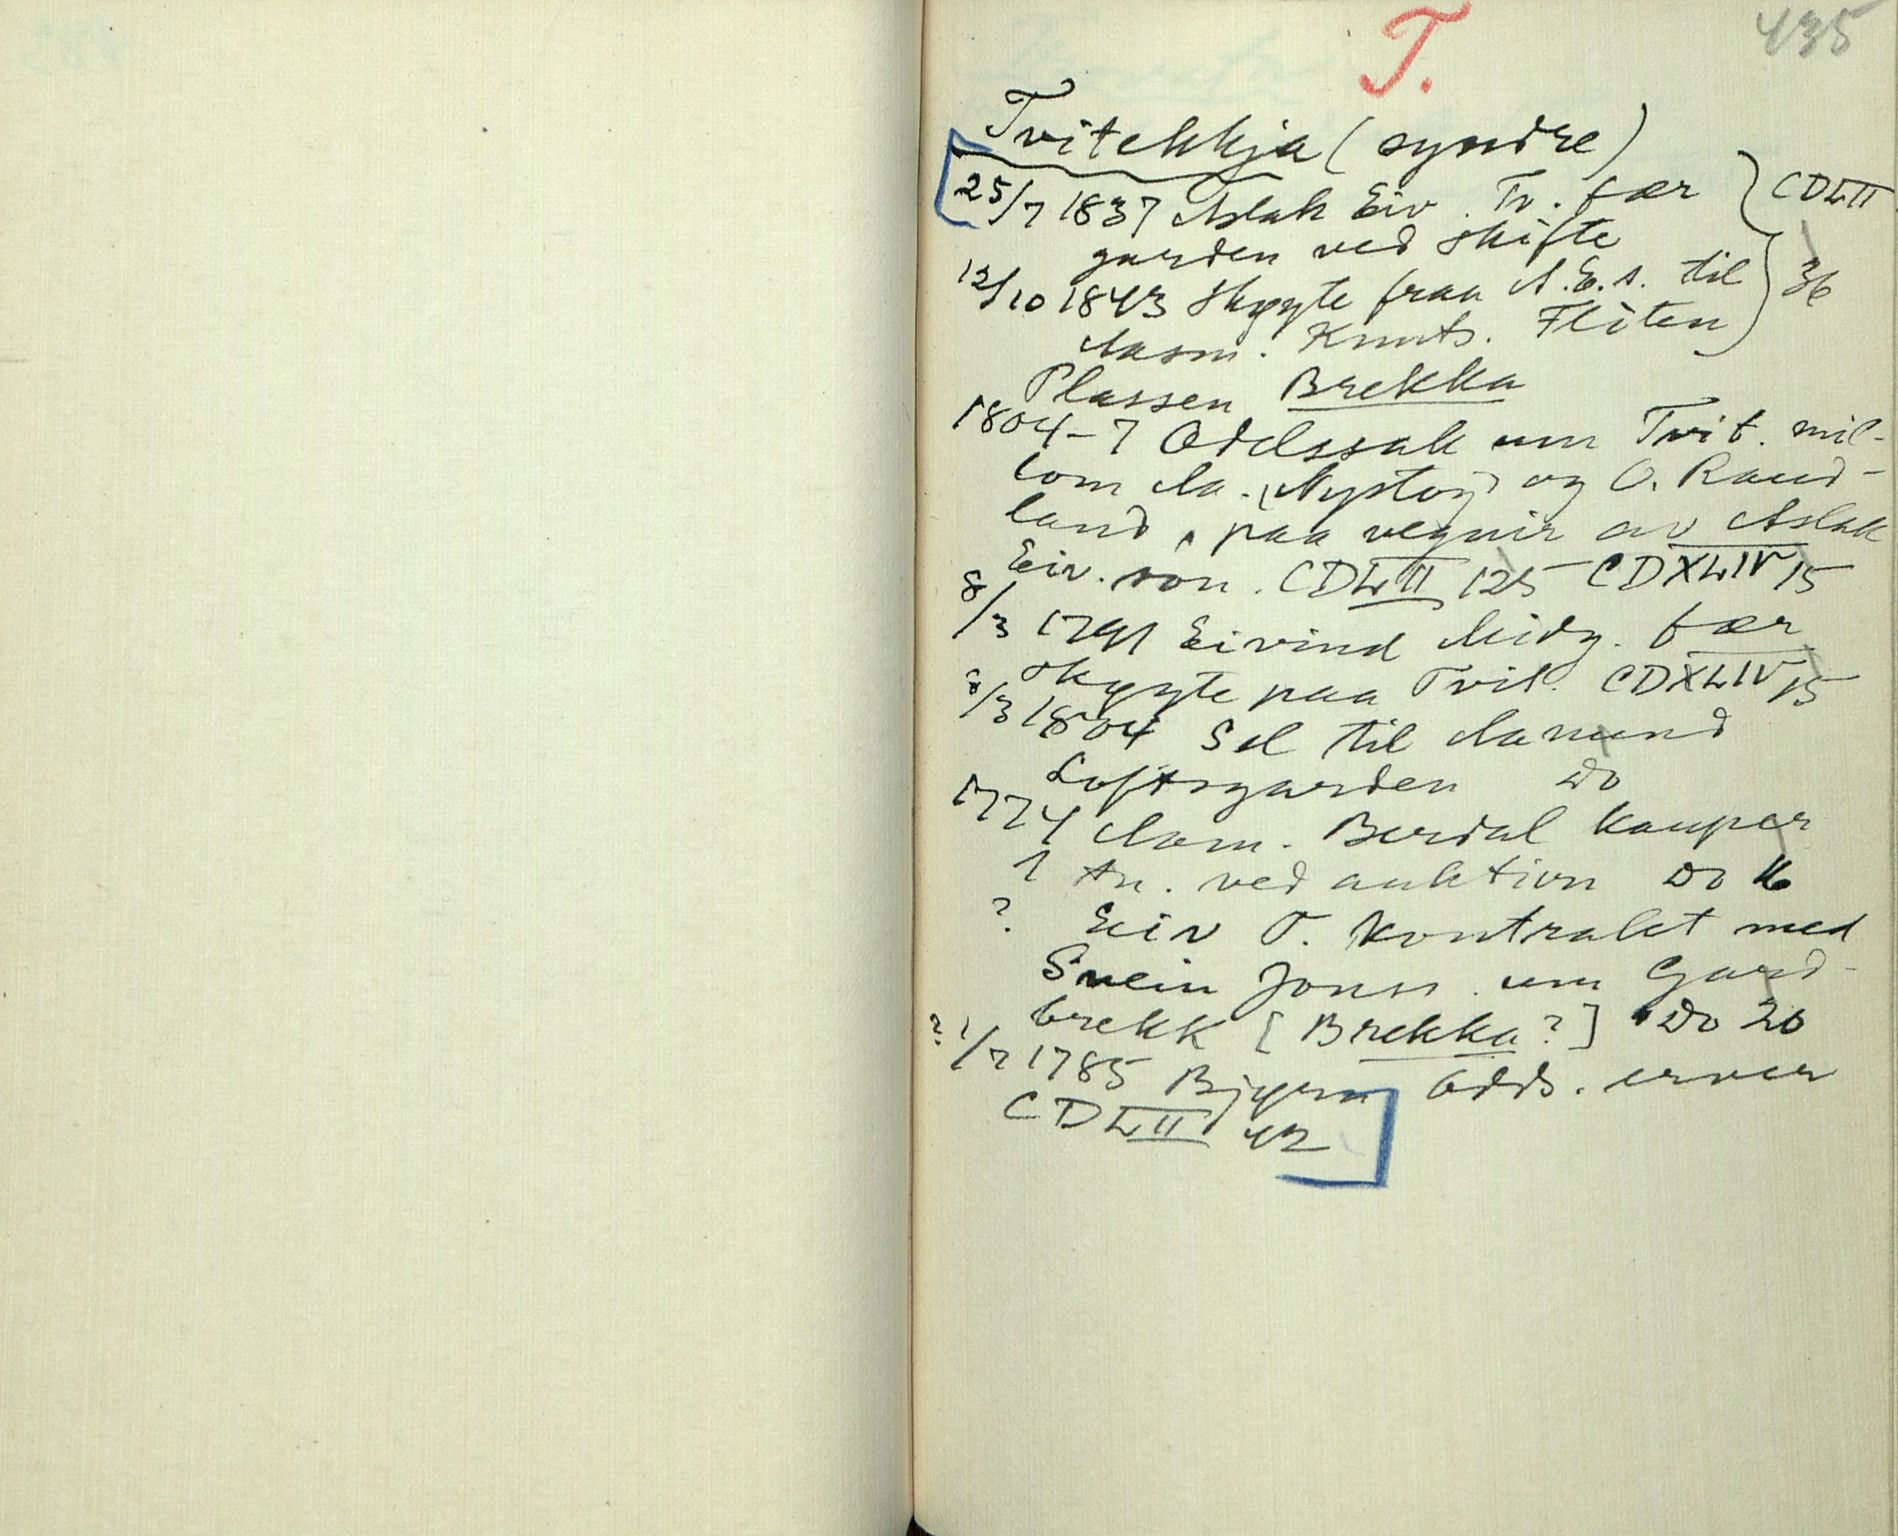 T.
435
Tvitekkja (syndre)
25/7 1837 Aslak Eiv. Tv. fær
garden ved skifte
CDLII
12/10 1843 skøyte fraa A.E.s. til
36
Aasm. Knuts. Flòten
Plassen Brekka
1804-7 Odelssak um Tvit. mil-
lom Aa. (Nystog) og O. Raud-
land, paa vegnir av Aslak
Eiv. son. CDLII 125 CDXLIV 15
8/3 1791 Eivind Midg. fær
skøyte paa Tvit. CDXLIV 15
8/3 1804 Sel til Aamund
Loftsgarden Do
1774 Aasm. Berdal kauper
1 tn. ved auktion Do 16
? Eiv T. kontrakt med
Svein Jonss. um Gard-
brekk [Brekka?] Do 20
? 1/7 1785 Bjørn Odds. erver
CDLII 42